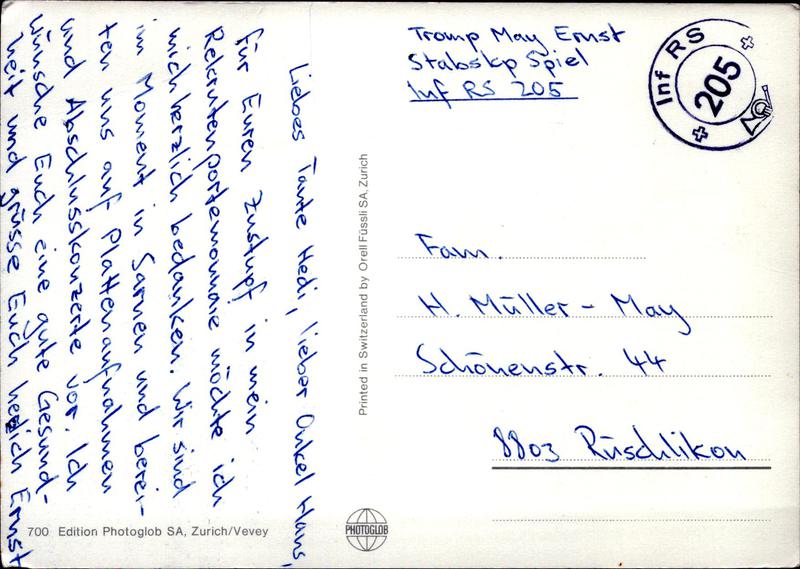 Tromp May Ernst
Stabskp Spiel
Inf RS 205
Inf RS
205
Liebes Tante Hedi, lieber Onkel Hans,
für Euren Zustupf in mein
Rekrutenportemonnaie möchte ich
mich herzlich bedanken. Wir sind
im Moment in Sarnen und berei-
ten uns auf Plattenaufnahmen
und Abschlusskonzerte vor. Ich
wünsche Euch eine gute Gesund-
heit und grüsse Euch herzlich Ernst
Printed in Switzerland by Orell Füssli SA, Zurich
Fam.
H. Müller - May
Schönenstr. 44
8803 Rüschlikon
700 Edition Photoglob SA, Zurich/Vevey
PHOTOGLOB